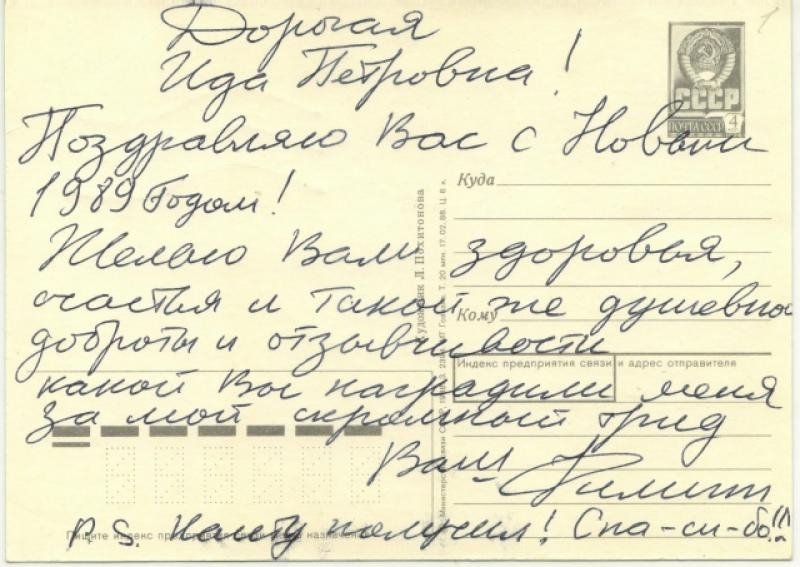 Дорогая
Ида Петровна!
Поздравляю Вас с Новым
1989 Годом!
Желаю Вам здоровья,
счастья и такой же душевной
доброты и отзывчивости
какой Вы наградили меня
за мой скромный труд
Ваш
P.S. получил! Спа-си-бо!!!
СССР
ПОЧТА СССР 4
Куда
Кому
Индекс предприятия связи и адрес отправителя
Художник Л. Похитонова
Министерство связи СССР
Пишите индекс предприятия связи назначения